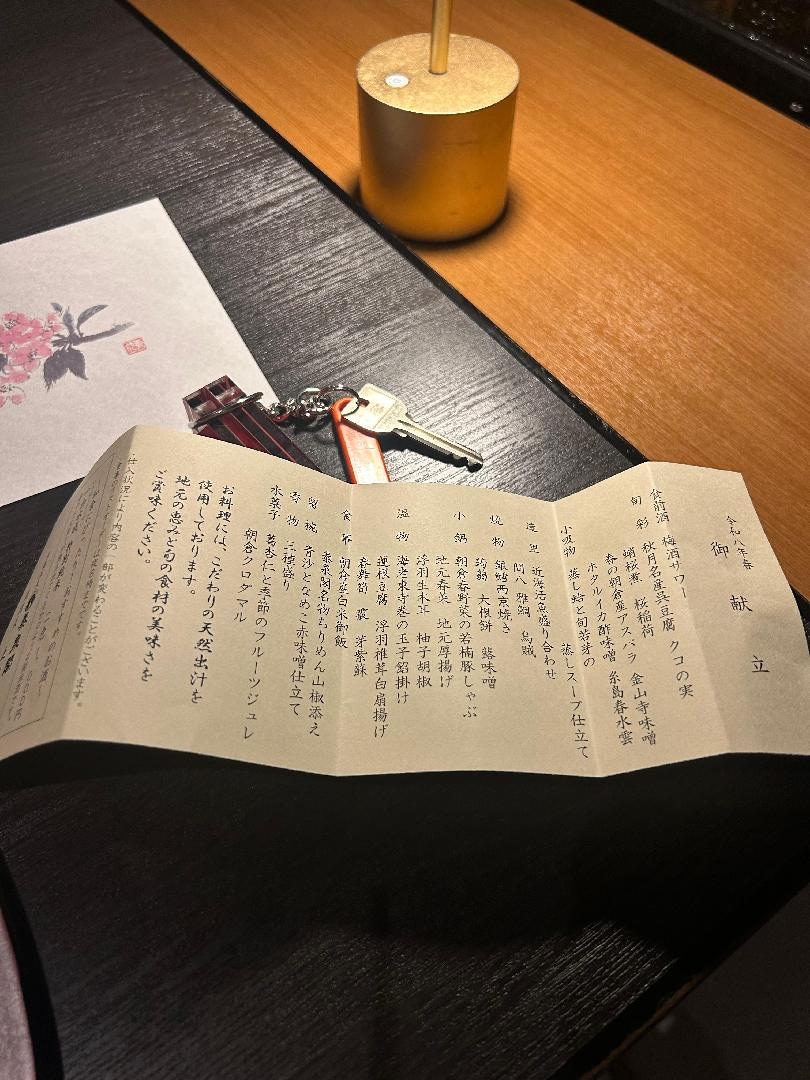 令和八年春
御献立
食前酒 梅酒サワー クコの実
旬彩 秋月名産呉豆腐 金山寺味噌
蛸桜煮 桜稲荷
春の朝倉産アスパラ 糸島春水雲
ホタルイカ酢味噌
小吸物 蒸し蛤と旬若芽の
蒸しスープ仕立て
造里 近海活魚盛り合わせ
間八 雅鯛 烏賊
焼物 銀鱈西京焼き
筍 大根餅 蕗味噌
小鍋 朝倉春野菜の若楠豚しゃぶ
地元春菜 地元厚揚げ
浮羽生木耳 柚子胡椒
温物 海老東寺巻の玉子餡掛け
蓮根豆腐 浮羽椎茸白扇揚げ
巻舞茸 蕨 芽紫蘇
食事 朝倉産白米御飯
泰泉閣名物ちりめん山椒添え
留椀 青沙となめこ赤味噌仕立て
香物 三種盛り
水菓子 葛杏仁と季節のフルーツジュレ
朝倉クロダマル
お料理には、こだわりの天然出汁を
使用しております。
地元の恵みと旬の食材の美味さを
ご賞味ください。
仕入状況により内容の一部が変わることがございます。